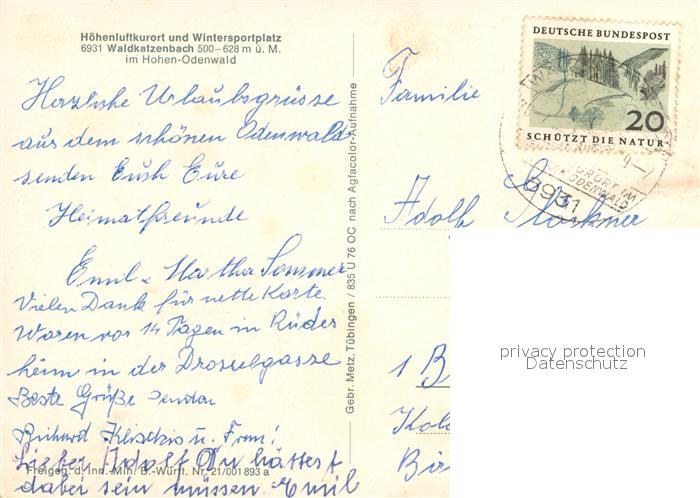 Höhenluftkurort und Wintersportplatz
6931 Waldkatzenbach 500–628 m ü. M.
im Hohen-Odenwald
Herzliche Urlaubsgrüsse
aus dem schönen Odenwald
senden Euch Eure
Heimatfreunde
Emil u. Martha Sommer
Vielen Dank für nette Karte.
Waren vor 14 Tagen in Rüdes
heim in der Drosselgasse
Beste Grüße senden
Richard u. Frau!
Lieber Adolf Du hättest
dabei sein müssen. Emil
Freigeg. d. Inn. Min. B.-Württ. Nr. 21/001 893 a
Gebr. Metz, Tübingen / 835 U 76 OC nach Agfacolor-Aufnahme
DEUTSCHE BUNDESPOST
20
SCHÜTZT DIE NATUR
KURORT IM
ODENWALD
6931
Familie
Adolf
1 B
privacy protection
Datenschutz
Kol
Bir